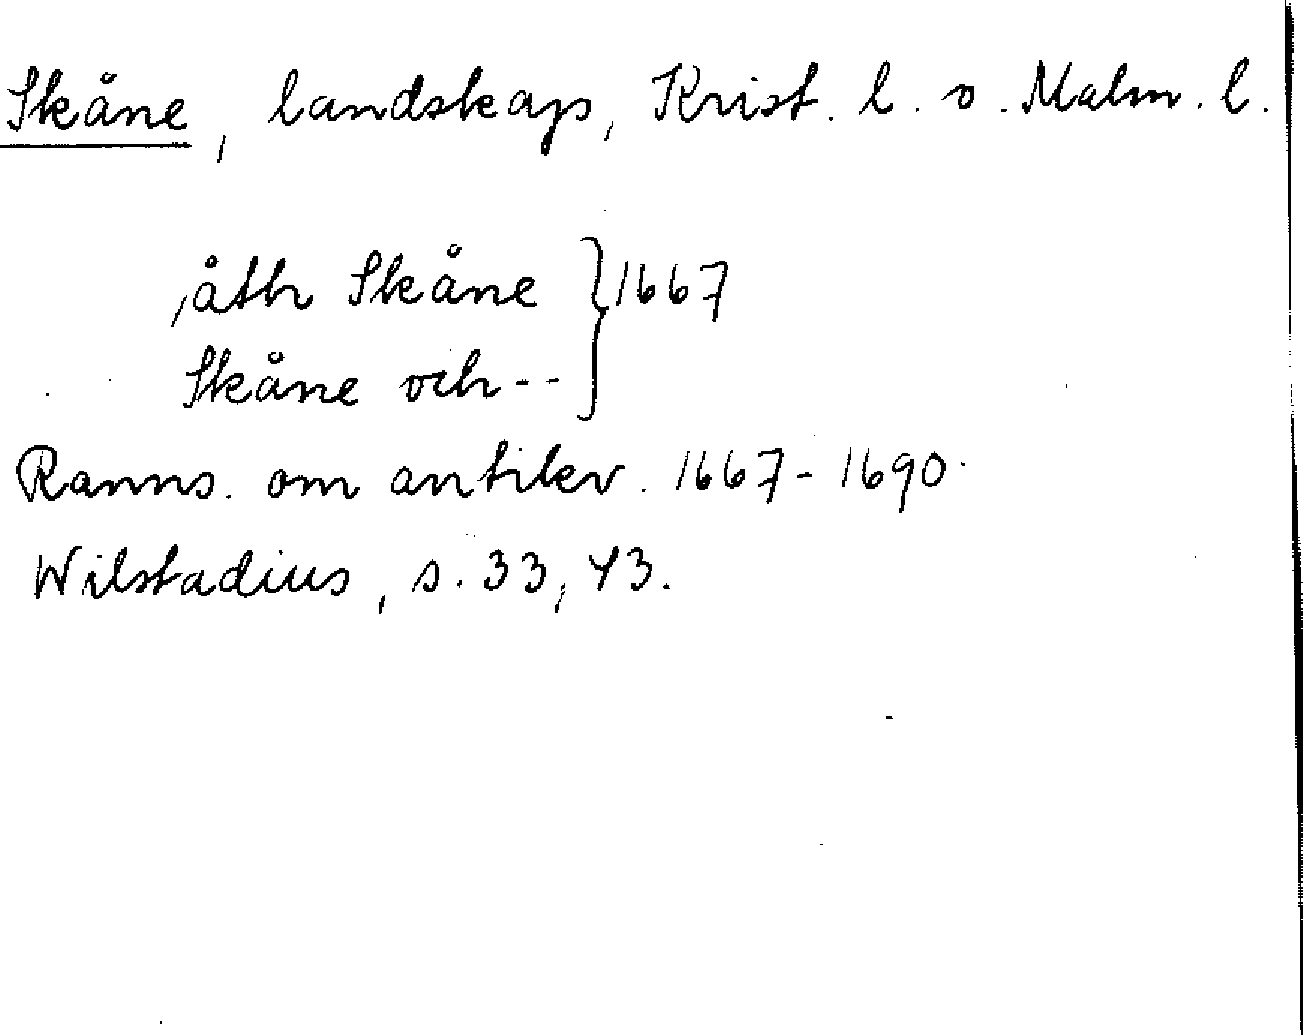 Skåne, landskap, Krist. l. o. Malm. l.
,åth Skåne } 1667
Skåne och --
Ranns. om antikv. 1667-1690.
Wilstadius, s. 33, 43.